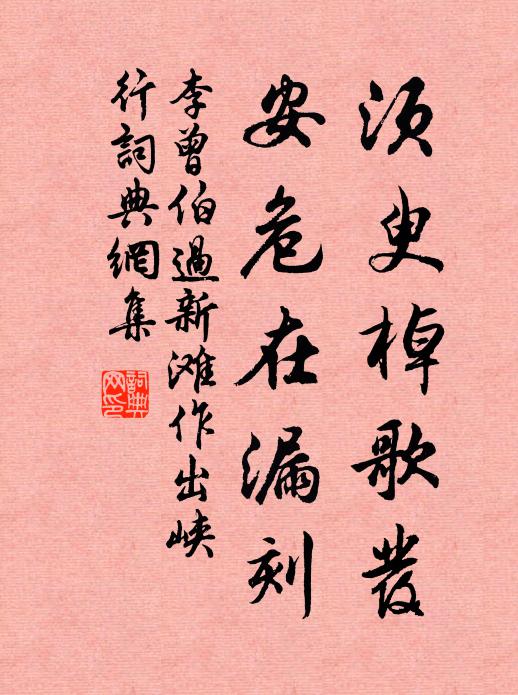 須臾棹歌發
安危在漏刻
李曾伯過新滩作出峽
行詞典網集
詞典
网印